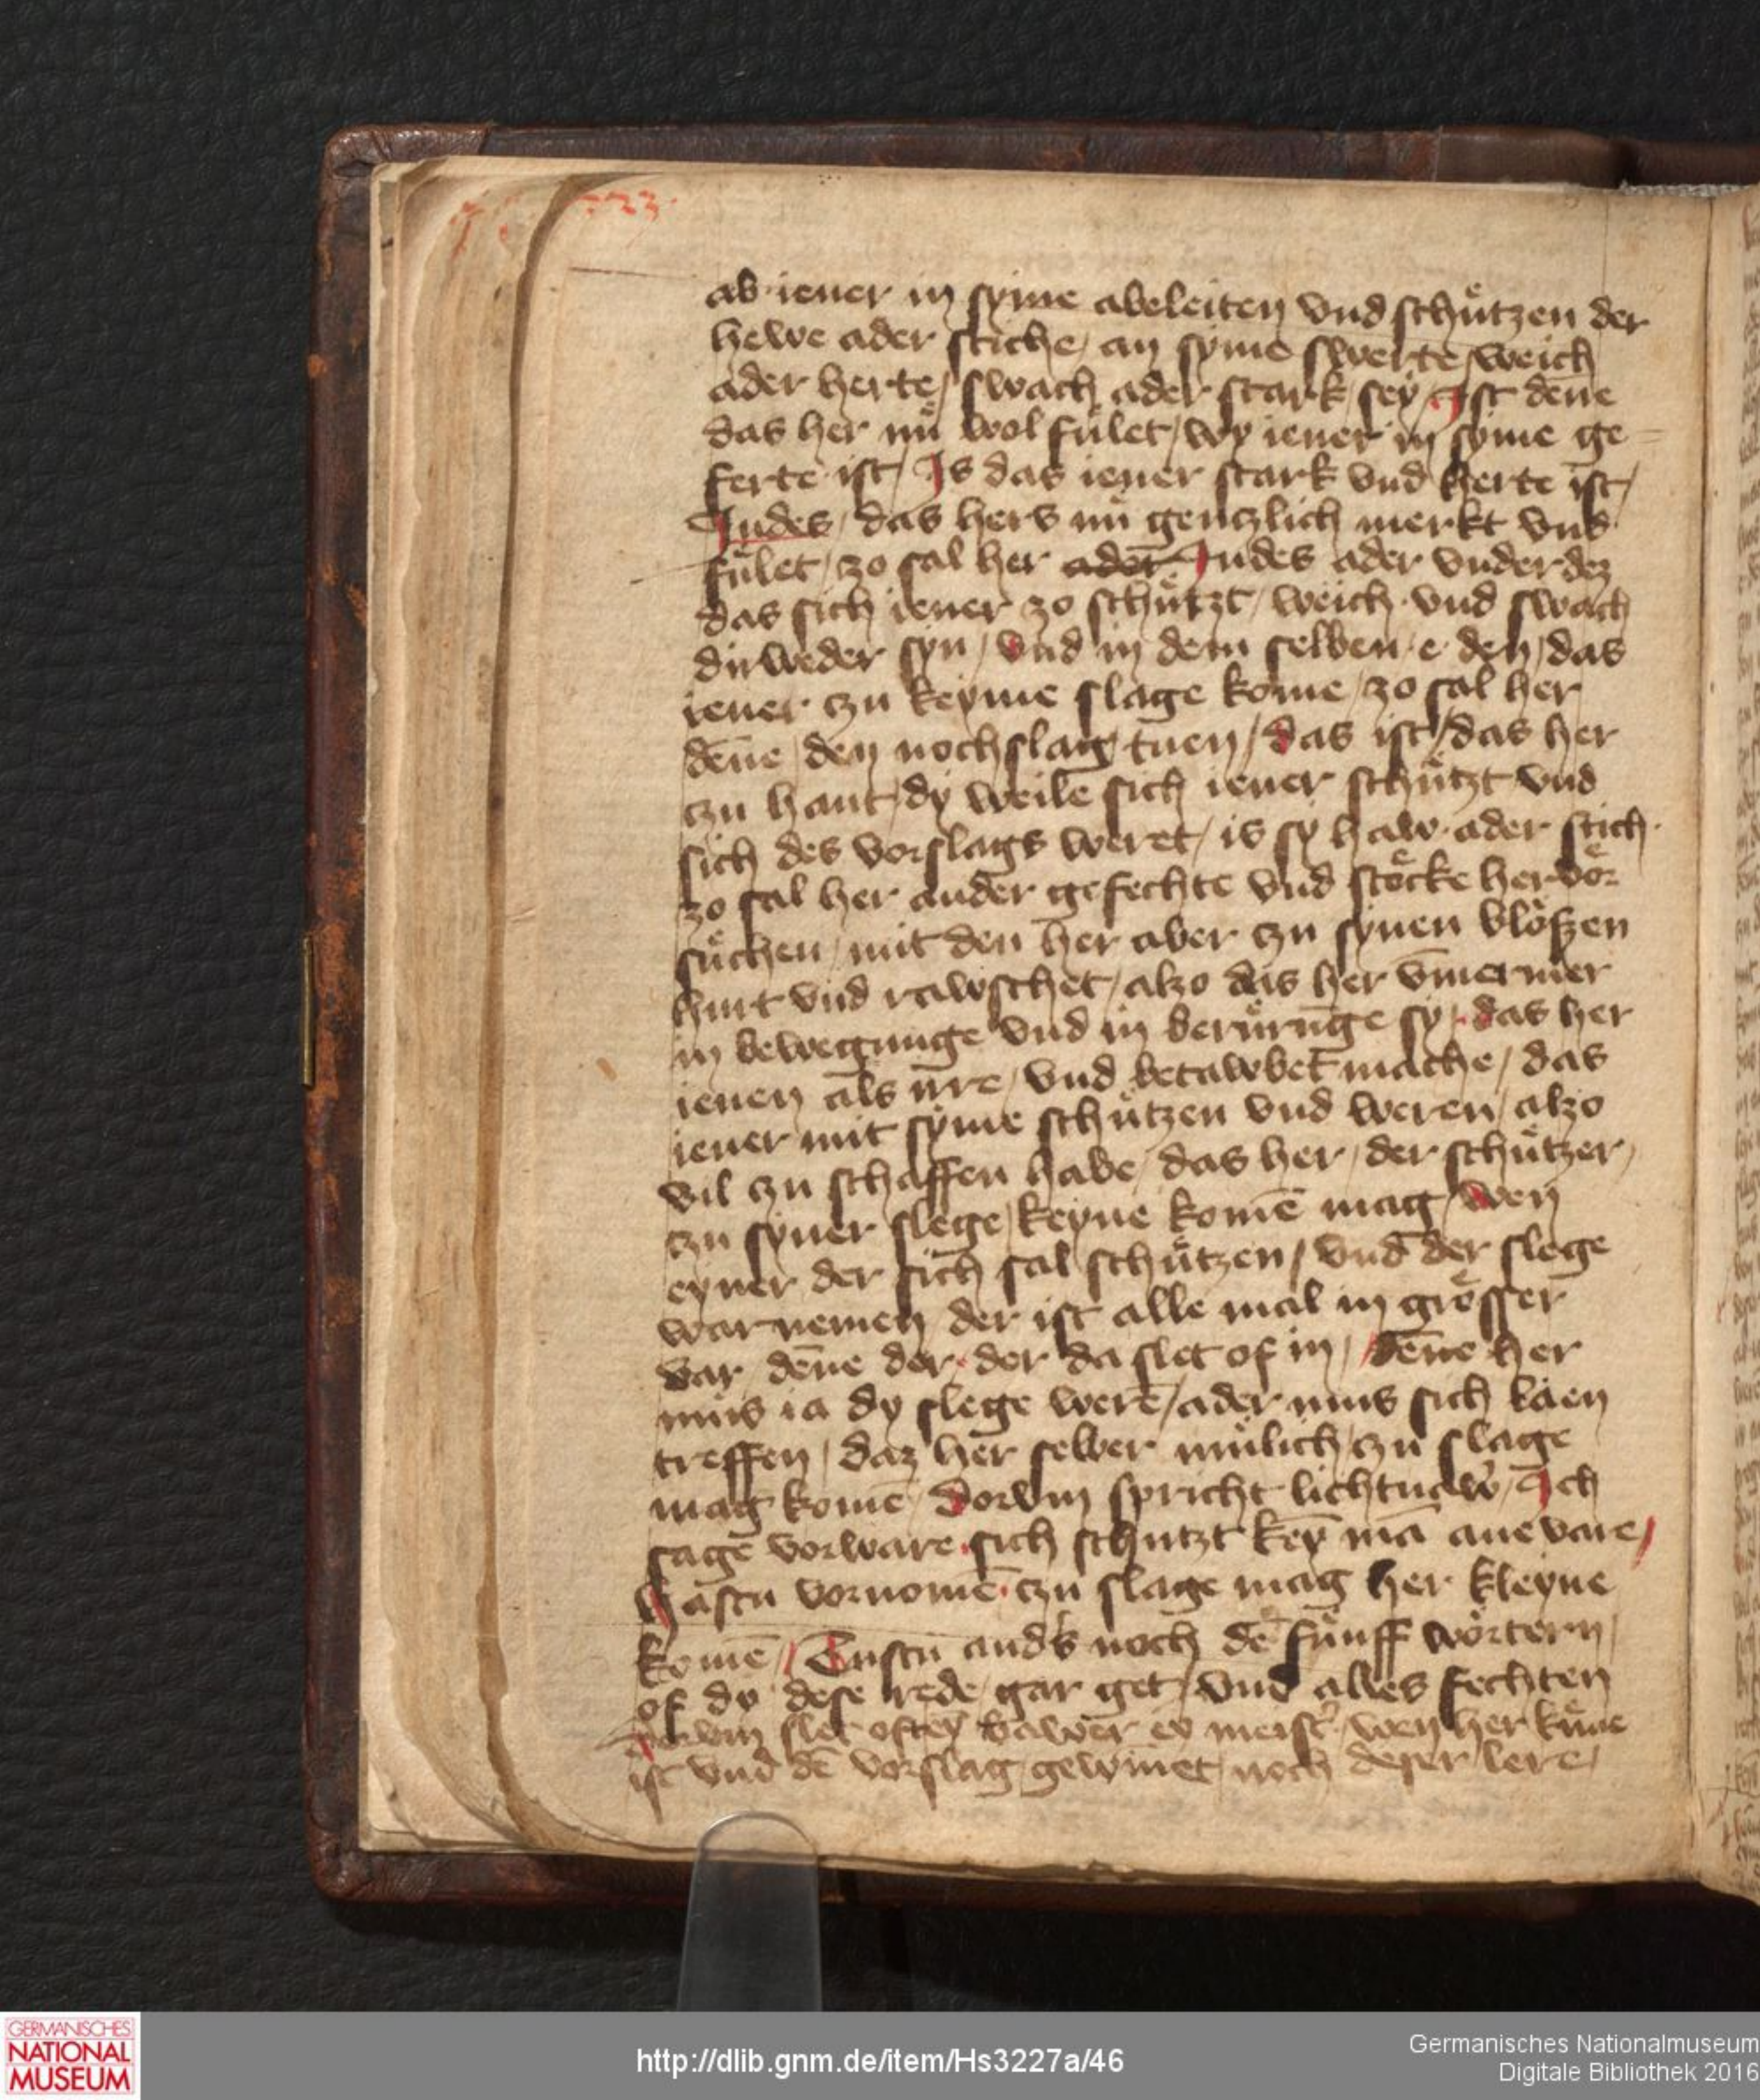 23
ab iener in syme abeleiten vnd schuͤtzen der
hewe ader stiche / an syme swerte / weich
ader herte / swach ader stark / sey / Ist deñe
das her nuͤ wol fuͤlet / wy iener in syme ge=
ferte ist / Is das iener stark vnd herte ist /
Indes / das hers nuͤ gentzlich merkt vnd
fuͤlet / zo sal her ader Indes ader vnderdez
das sich iener zo schuͤtzt / weich vnd swach
dirweder syn / vnd in dem selben / e den / das
iener czu keyme slage kome / zo sal her
deñe / den nochslag tuen / das ist / das her
czu hant / dy weile sich iener schuͤtzt vnd
sich des vorslags weret / is sy haw ader stich
zo sal her ander gefechte vnd stoͤcke hervoͤr
suͤchen / mit den her aber czu synen bloͤßen
hurt vnd rawschet / alzo das her v̄mermer
in bewegunge vnd in beruͤrūge sy / das her
ienen als irre / vnd betawbet mache / das
iener mit syme schuͤtzen vnd weren / alzo
vil czu schaffen habe / das her / der schuͤtzer /
czu syner slege / keyne komē mag / wen
eyner der sich sal schuͤtzen / vnd der slege
warnemen / der ist alle mal in groͤsser
var / deñe der / der da slet of in / deñe her
mus ia dy slege werē / ader mus sich laen
treffen / daz her selber muͤlich czu slage
mag komē / dorvm spricht lichtnaw̓ / Ich
sage vorware / sich schutzt keȳ mā ane vare /
Hastu vornomē / czu slage mag her kleyne
komē / Tustu and̓s noch dē fuͤnff woͤrtern /
of dy dese rede / gar get / vnd alles fechten
dorvm slet oftē eȳ bawer eȳ meist̓ / wen her kuͤne
ist vnd dē vorslag gewīnet / noch deser lere /
GERMANISCHES
NATIONAL
MUSEUM
http://dlib.gnm.de/item/Hs3227a/46
Germanisches Nationalmuseum
Digitale Bibliothek 2016